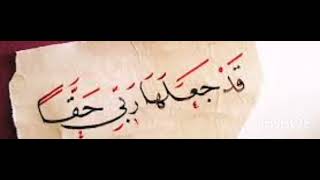 قَدْ جَعَلَهَا رَبِّي حَقًّا